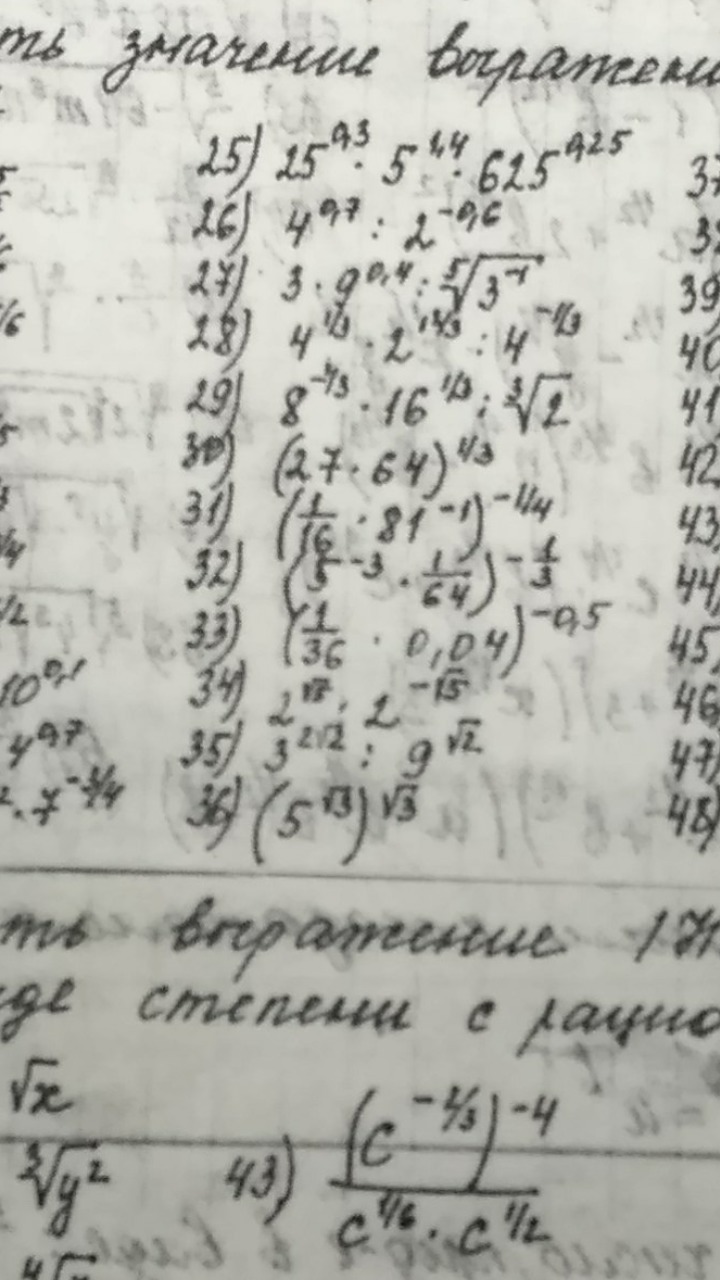 ть значение выражени
25) 25^0,3 · 5^1,4 · 625^0,25
26) 4^0,7 : 2^-0,6
27) 3 · 9^0,4 : ⁵√3^-1
28) 4^1/3 · 2 : 4^-1/3
29) 8 · 16^1/3 : ³√2
30) (27 · 64)^1/3
31) (1/16 · 81^-1)^-1/4
32) (5^-3 · 1/64)^-1/3
33) (1/36 · 0,04)^-0,5
34) 2 · 2^-√5
35) 3^2√2 : 9^√2
36) (5^√3)^√3
37
39
40
41
42
43
44
45
46
47)
48)
10^0,1
4^0,7
· 7^-3/4
ть выражение
де степени с рацио
√x
³√y²
43) (c^-2/3)^-4 / c^1/6 · c^1/2